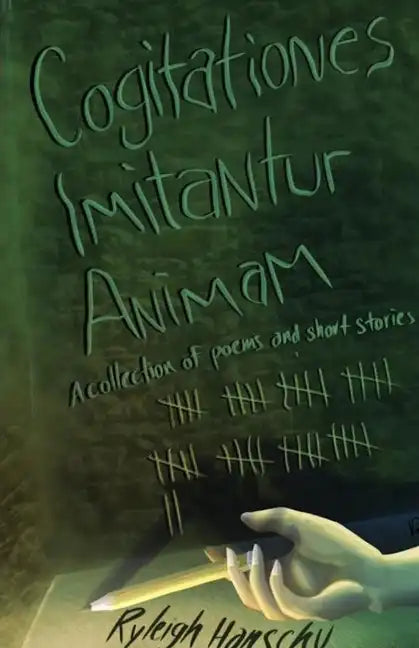 Cogitationes
Imitantur
Animam
A collection of poems and short stories
Ryleigh Hanschu